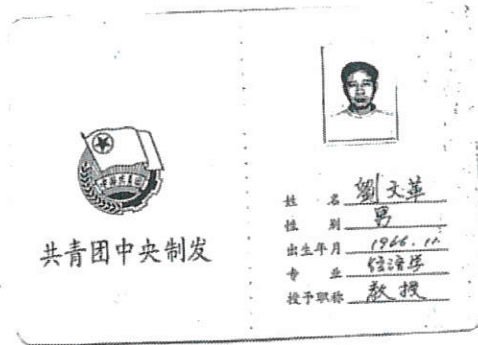 中国共青团
共青团中央制发
姓 名 劉文革
性 别 男
出生年月 1966.11.
专 业 经济学
授予职称 教授